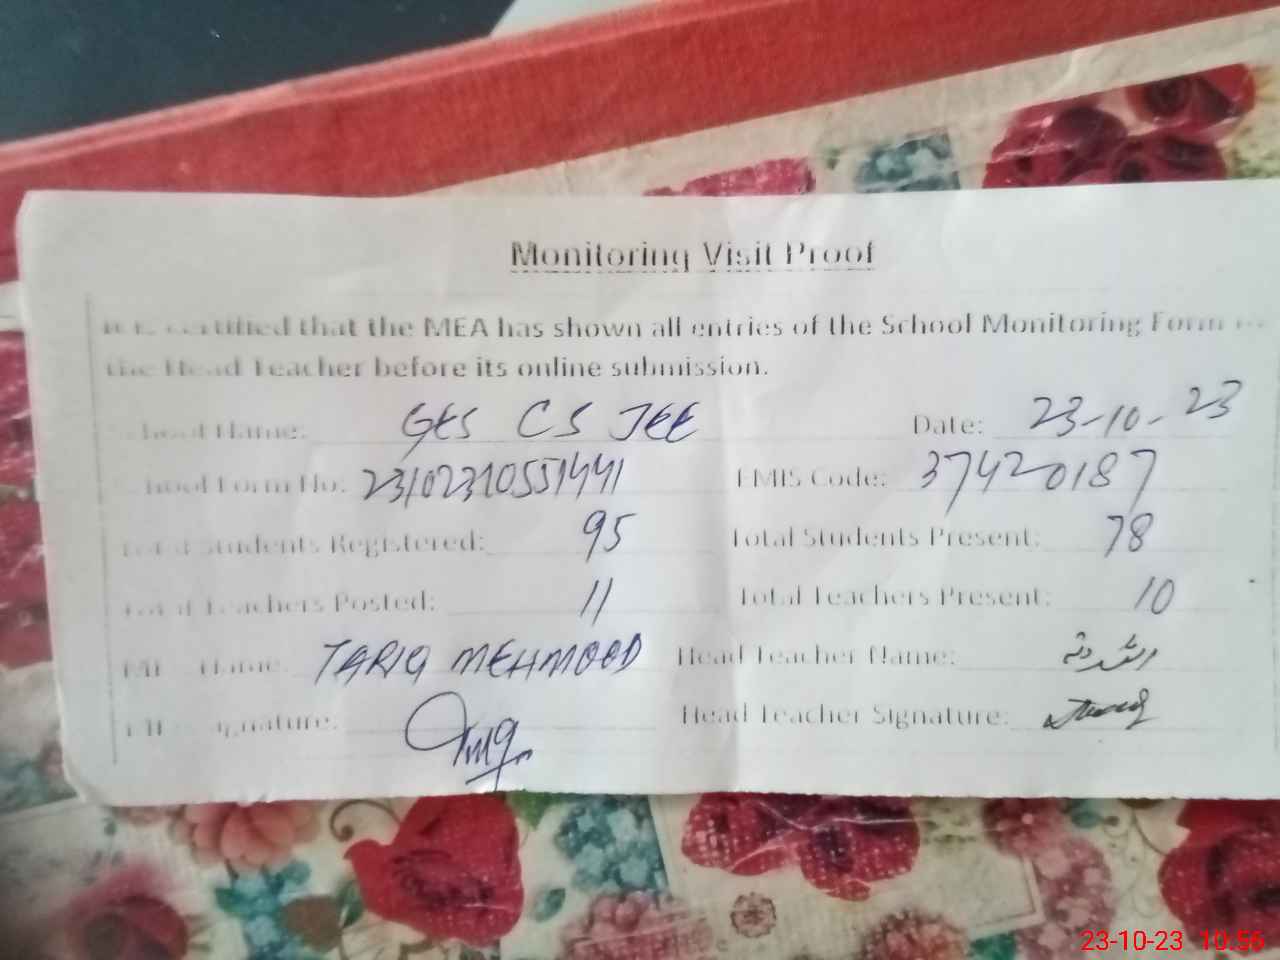 Monitoring Visit Proof
It is certified that the MEA has shown all entries of the School Monitoring Form to
the Head Teacher before its online submission.
School Name: GES CS JEE Date: 23-10-23
School Form No: 23102310551441 EMIS Code: 37420187
Total Students Registered: 95 Total Students Present: 78
Total Teachers Posted: 11 Total Teachers Present: 10
Name: TARIQ MEHMOOD Head Teacher Name:
Signature: Head Teacher Signature:
23-10-23 10:56